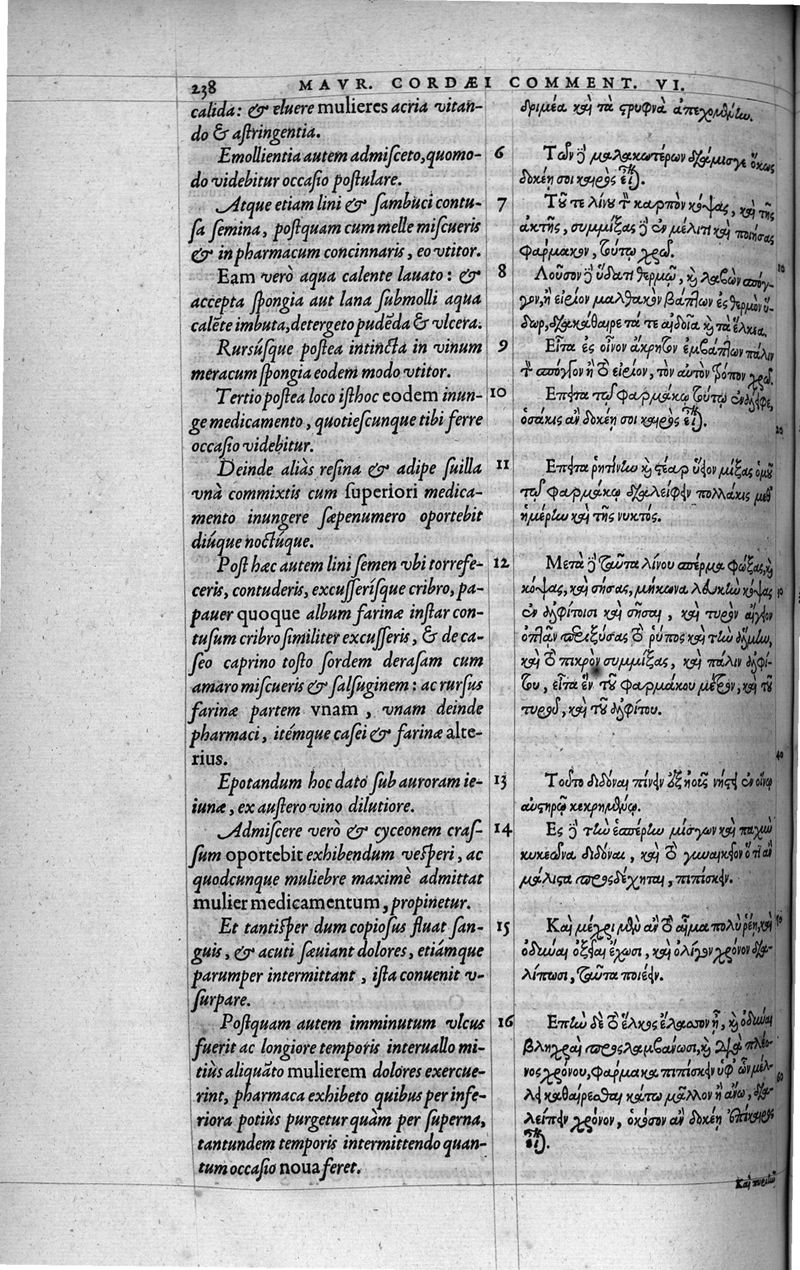 238 MAVR. CORDÆI COMMENT. VI.
calida: & eluere mulieres acria vitan-
do & astringentia.
Emollientia autem admisceto, quomo-
do videbitur occasio postulare.
Atque etiam lini & sambuci contu-
sa semina, postquam cum melle miscueris
& in pharmacum concinnaris, eo vtitor.
Eam verò aqua calente lauato: &
accepta spongia aut lana submolli aqua
calēte imbuta, detergeto pudēda & vlcera.
Rursúsque postea intincta in vinum
meracum spongia eodem modo vtitor.
Tertio postea loco isthoc eodem inun-
ge medicamento, quotiescunque tibi ferre
occasio videbitur.
Deinde aliàs resina & adipe suilla
vnà commixtis cum superiori medica-
mento inungere sæpenumero oportebit
diúque noctúque.
Post hæc autem lini semen vbi torrefe-
ceris, contuderis, excusserísque cribro, pa-
pauer quoque album farinæ instar con-
tusum cribro similiter excusseris, & de ca-
seo caprino tosto sordem derasam cum
amaro miscueris & salsuginem: ac rursus
farinæ partem vnam, vnam deinde
pharmaci, itémque casei & farinæ alte-
rius.
Epotandum hoc dato sub auroram ie-
iunæ, ex austero vino dilutiore.
Admiscere verò & cyceonem cras-
sum oportebit exhibendum vesperi, ac
quodcunque muliebre maximè admittat
mulier medicamentum, propinetur.
Et tantisper dum copiosus fluat san-
guis, & acuti sæuiant dolores, etiámque
parumper intermittant, ista conuenit v-
surpare.
Postquam autem imminutum vlcus
fuerit ac longiore temporis interuallo mi-
tiùs aliquāto mulierem dolores exercue-
rint, pharmaca exhibeto quibus per infe-
riora potiùs purgetur quàm per superna,
tantundem temporis intermittendo quan-
tum occasio noua feret.
δριμέα καὶ τὰ στρυφνὰ ἀπεχομένω.
6 Τῶν δὲ μαλακωτέρων διάμισγε ὅκως
δοκέῃ σοι καιρὸς εἶναι.
7 Τοῦ τε λίνου τὸν καρπὸν κόψας, καὶ τῆς
ἀκτῆς, συμμίξας δὲ ἐν μέλιτι καὶ ποιήσας
φάρμακον, τούτῳ χρῶ.
8 Λοῦσον δὲ ὕδατι θερμῷ, καὶ λαβὼν σπόγ-
γον, ἢ εἰρίον μαλθακὸν βάπτων ἐς θερμὸν ὕ-
δωρ, διακάθαιρε τά τε αἰδοῖα καὶ τὰ ἕλκεα.
9 Εἶτα ἐς οἶνον ἄκρητον ἐμβάπτων πάλιν
τὸν σπόγγον ἢ τὸ εἰρίον, τὸν αὐτὸν τρόπον χρῶ.
10 Ἔπειτα τῷ φαρμάκῳ τούτῳ ἐνάλειφε,
ὁσάκις ἂν δοκέῃ σοι καιρὸς εἶναι.
11 Ἔπειτα ῥητίνην καὶ στέαρ ὕειον μίξας ὁμοῦ
τῷ φαρμάκῳ διαλείφειν πολλάκις μεθ'
ἡμέρην καὶ τῆς νυκτός.
12 Μετὰ δὲ ταῦτα λίνου σπέρμα φώξας, καὶ
κόψας, καὶ σήσας, μήκωνα λευκὴν κόψας
ἐν ἀλφίτοισι καὶ σῆσαι, καὶ τυρὸν αἴγειον
ὀπτὸν περιξύσας τὸ ῥύπος καὶ τὴν ἅλμην,
καὶ τὸ πικρὸν συμμίξας, καὶ πάλιν ἀλφί-
του, εἶτα ἓν τοῦ φαρμάκου μέτρον, καὶ τοῦ
τυροῦ, καὶ τοῦ ἀλφίτου.
13 Τοῦτο διδόναι πίνειν ἐξ ἠοῖς νήστει ἐν οἴνῳ
αὐστηρῷ κεκρημένῳ.
14 Ἐς δὲ τὴν ἑσπέρην μίσγων καὶ παχὺν
κυκεῶνα διδόναι, καὶ τὸ γυναικεῖον ὅ τι ἂν
μάλιστα προσδέχηται, πιπίσκειν.
15 Καὶ μέχρι μὲν ἂν τὸ αἷμα πολὺ ῥέῃ, καὶ
ὀδύναι ὀξέαι ἔχωσι, καὶ ὀλίγον χρόνον δια-
λίπωσι, ταῦτα ποιέειν.
16 Ἐπὴν δὲ τὸ ἕλκος ἔλασσον ᾖ, καὶ ὀδύναι
βληχραὶ προσλαμβάνωσι, καὶ διὰ πλέο-
νος χρόνου, φάρμακα πιπίσκειν ὑφ' ὧν μέλ-
λει καθαίρεσθαι κάτω μᾶλλον ἢ ἄνω, δια-
λείπειν χρόνον, ὁκόσον ἂν δοκέῃ ἐπίκαιρος
εἶναι.
10
20
30
40
50
60